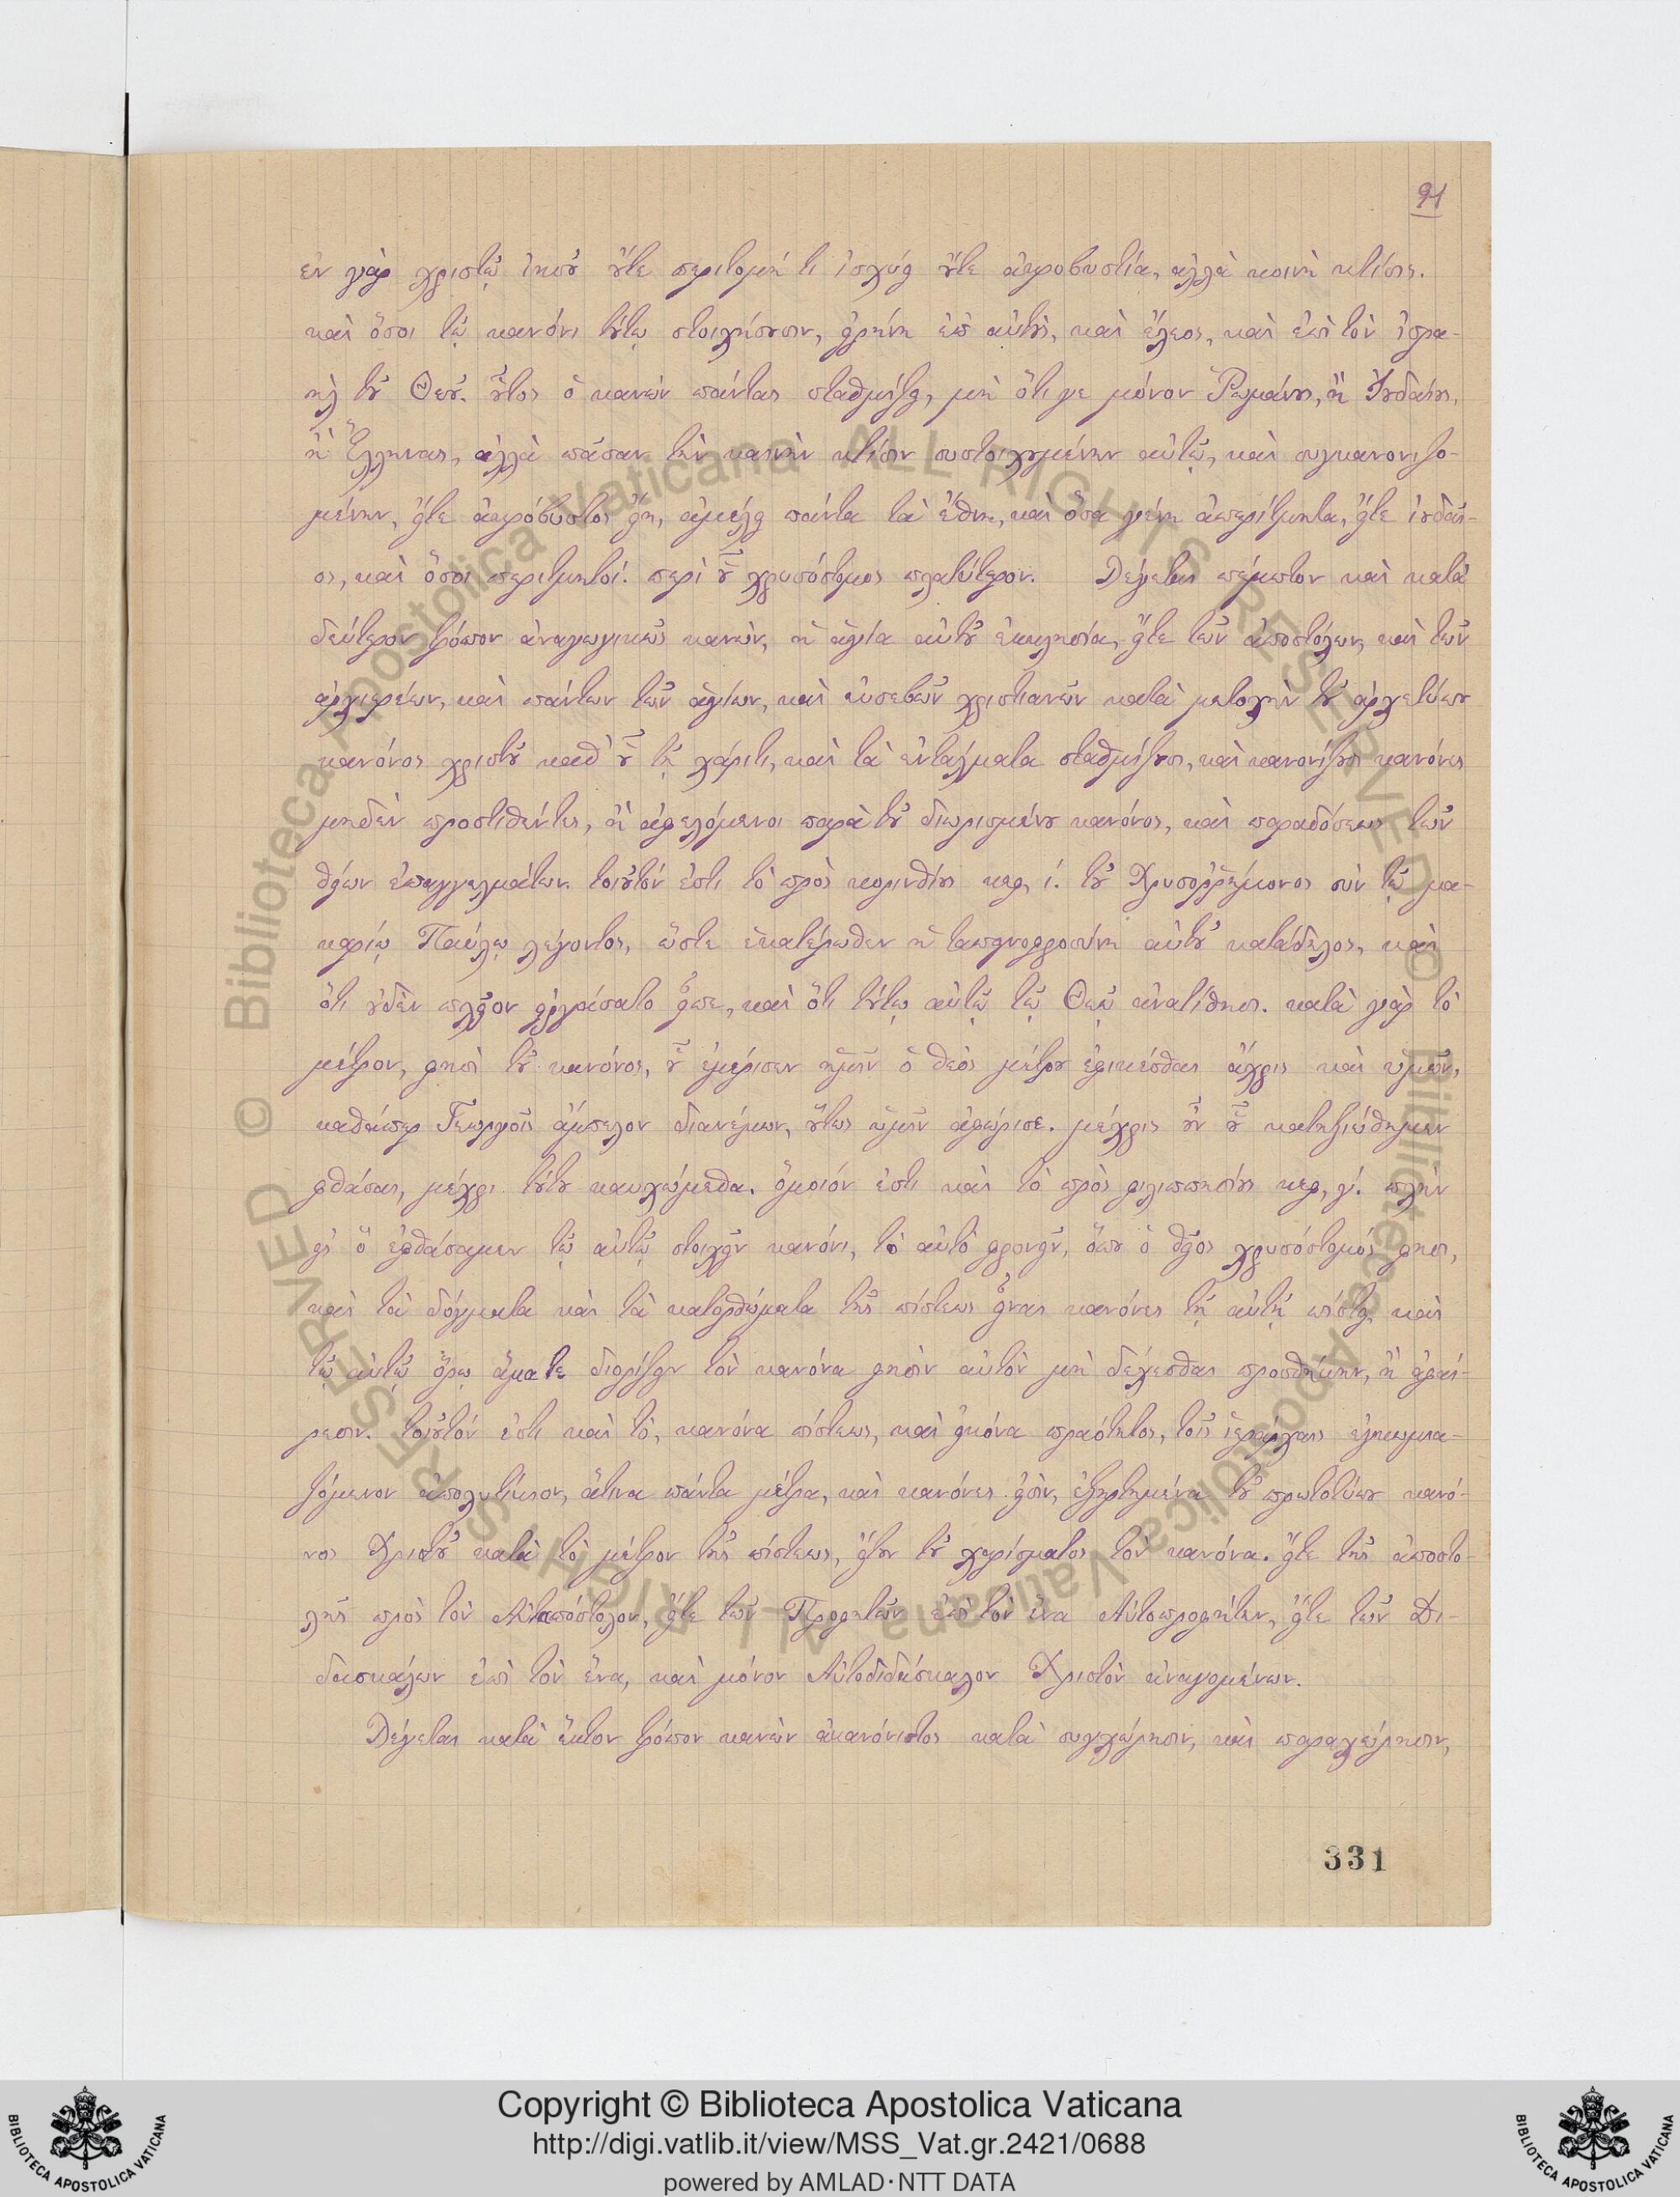 91
ἐν γὰρ χριστῷ ἰησοῦ οὔτε περιτομή τι ἰσχύει οὔτε ἀκροβυστία, ἀλλὰ καινὴ κτίσις.
καὶ ὅσοι τῷ κανόνι τούτῳ στοιχήσουσιν, εἰρήνη ἐπ' αὐτοὺς, καὶ ἔλεος, καὶ ἐπὶ τὸν ἰσρα-
ὴλ τοῦ Θεοῦ. οὗτος ὁ κανὼν πάντας σταθμίζει, μὴ ὅτι γε μόνον Ῥωμαίους, ἢ Ἰουδαίους,
ἢ Ἕλληνας, ἀλλὰ πᾶσαν τὴν καινὴν κτίσιν συστοιχουμένην αὐτῷ, καὶ συγκανονιζο-
μένην, εἴτε ἀκρόβυστος εἴη, ἀμέλει πάντα τὰ ἔθνη, καὶ ὅσα γένη ἀπερίτμητα, εἴτε ἰουδαῖ-
ος, καὶ ὅσοι περιτμητοί. περὶ οὗ χρυσόστομος πλατύτερον. Λέγεται πέμπτον καὶ κατὰ
δεύτερον τρόπον ἀναγωγικῶς κανὼν, ἡ ἁγία αὐτοῦ ἐκκλησία, εἴτε τῶν ἀποστόλων, καὶ τῶν
ἀρχιερέων, καὶ πάντων τῶν ἁγίων, καὶ εὐσεβῶν χριστιανῶν κατὰ μετοχὴν τοῦ ἀρχετύπου
κανόνος χριστοῦ καθ' οὗ τῇ χάριτι, καὶ τὰ ἐντάλματα σταθμίζουσι, καὶ κανονίζουσι κανόνες
μηδὲν προστιθέντες, ἢ ἀφελόμενοι παρὰ τοῦ διωρισμένου κανόνος, καὶ παραδόσεως τῶν
θείων ἐπαγγελμάτων. τοιοῦτόν ἐστι τὸ πρὸς κορινθίους κεφ, ι. τοῦ Χρυσοῤῥήμονος σὺν τῷ μα-
καρίῳ Παύλῳ λέγοντος, ὥστε ἑκατέρωθεν ἡ ταπεινοφροσύνη αὐτοῦ κατάδηλος, καὶ
ὅτι οὐδὲν πλεῖον εἰργάσατο εἶπε, καὶ ὅτι τούτῳ αὐτῷ τῷ Θεῷ ἀνατίθησι. κατὰ γὰρ τὸ
μέτρον, φησὶ τοῦ κανόνος, οὗ ἐμέρισεν ἡμῖν ὁ θεὸς μέτρου ἐφικέσθαι ἄχρις καὶ ὑμῶν,
καθάπερ Γεωργοῖς ἄμπελον διανέμων, οὕτως ἡμῖν ἀφώρισε. μέχρις οὖν οὗ κατηξιώθημεν
φθάσαι, μέχρι τούτου καυχώμεθα. ὅμοιόν ἐστι καὶ τὸ πρὸς φιλιππησίους κεφ, γ. πλὴν
εἰς ὃ ἐφθάσαμεν τῷ αὐτῷ στοιχεῖν κανόνι, τὸ αὐτὸ φρονεῖν, ὅπου ὁ θεῖος χρυσόστομός φησι,
καὶ τὰ δόγματα καὶ τὰ κατορθώματα τῆς πίστεως εἶναι κανόνες τῇ αὐτῇ πίστει, καὶ
τῷ αὐτῷ ὅρῳ ἅμα τε διορίζειν τὸν κανόνα φησὶν αὐτὸν μὴ δέχεσθαι προσθήκην, ἢ ἀφαί-
ρεσιν. τοιοῦτόν ἐστι καὶ τὸ, κανόνα πίστεως, καὶ εἰκόνα πραότητος, τοῖς ἱεράρχαις ἐγκωμια-
ζόμενον ἀπολυτίκιον, ἅτινα πάντα μέτρα, καὶ κανόνες εἰσὶν, ἐξηρτημένα τοῦ πρωτοτύπου κανό-
νος Χριστοῦ κατὰ τὸ μέτρον τῆς πίστεως, εἴτουν τοῦ χαρίσματος τὸν κανόνα. εἴτε τῆς ἀποστο-
λῆς πρὸς τὸν Αὐταπόστολον, εἴτε τῶν Προφητῶν ἐπὶ τὸν ἕνα Αὐτοπροφήτην, εἴτε τῶν Δι-
δασκάλων ἐπὶ τὸν ἕνα, καὶ μόνον Αὐτοδιδάσκαλον Χριστὸν ἀναγομένων.
Λέγεται κατὰ ἕκτον τρόπον κανὼν ἀκανόνιστος κατὰ συγχώρησιν, καὶ παραχώρησιν,
331
© Biblioteca Apostolica Vaticana ALL RIGHTS RESERVED © Biblioteca Apostolica Vaticana ALL RIGHTS RESERVED
Copyright © Biblioteca Apostolica Vaticana
http://digi.vatlib.it/view/MSS_Vat.gr.2421/0688
powered by AMLAD·NTT DATA
BIBLIOTECA APOSTOLICA VATICANA
BIBLIOTECA APOSTOLICA VATICANA